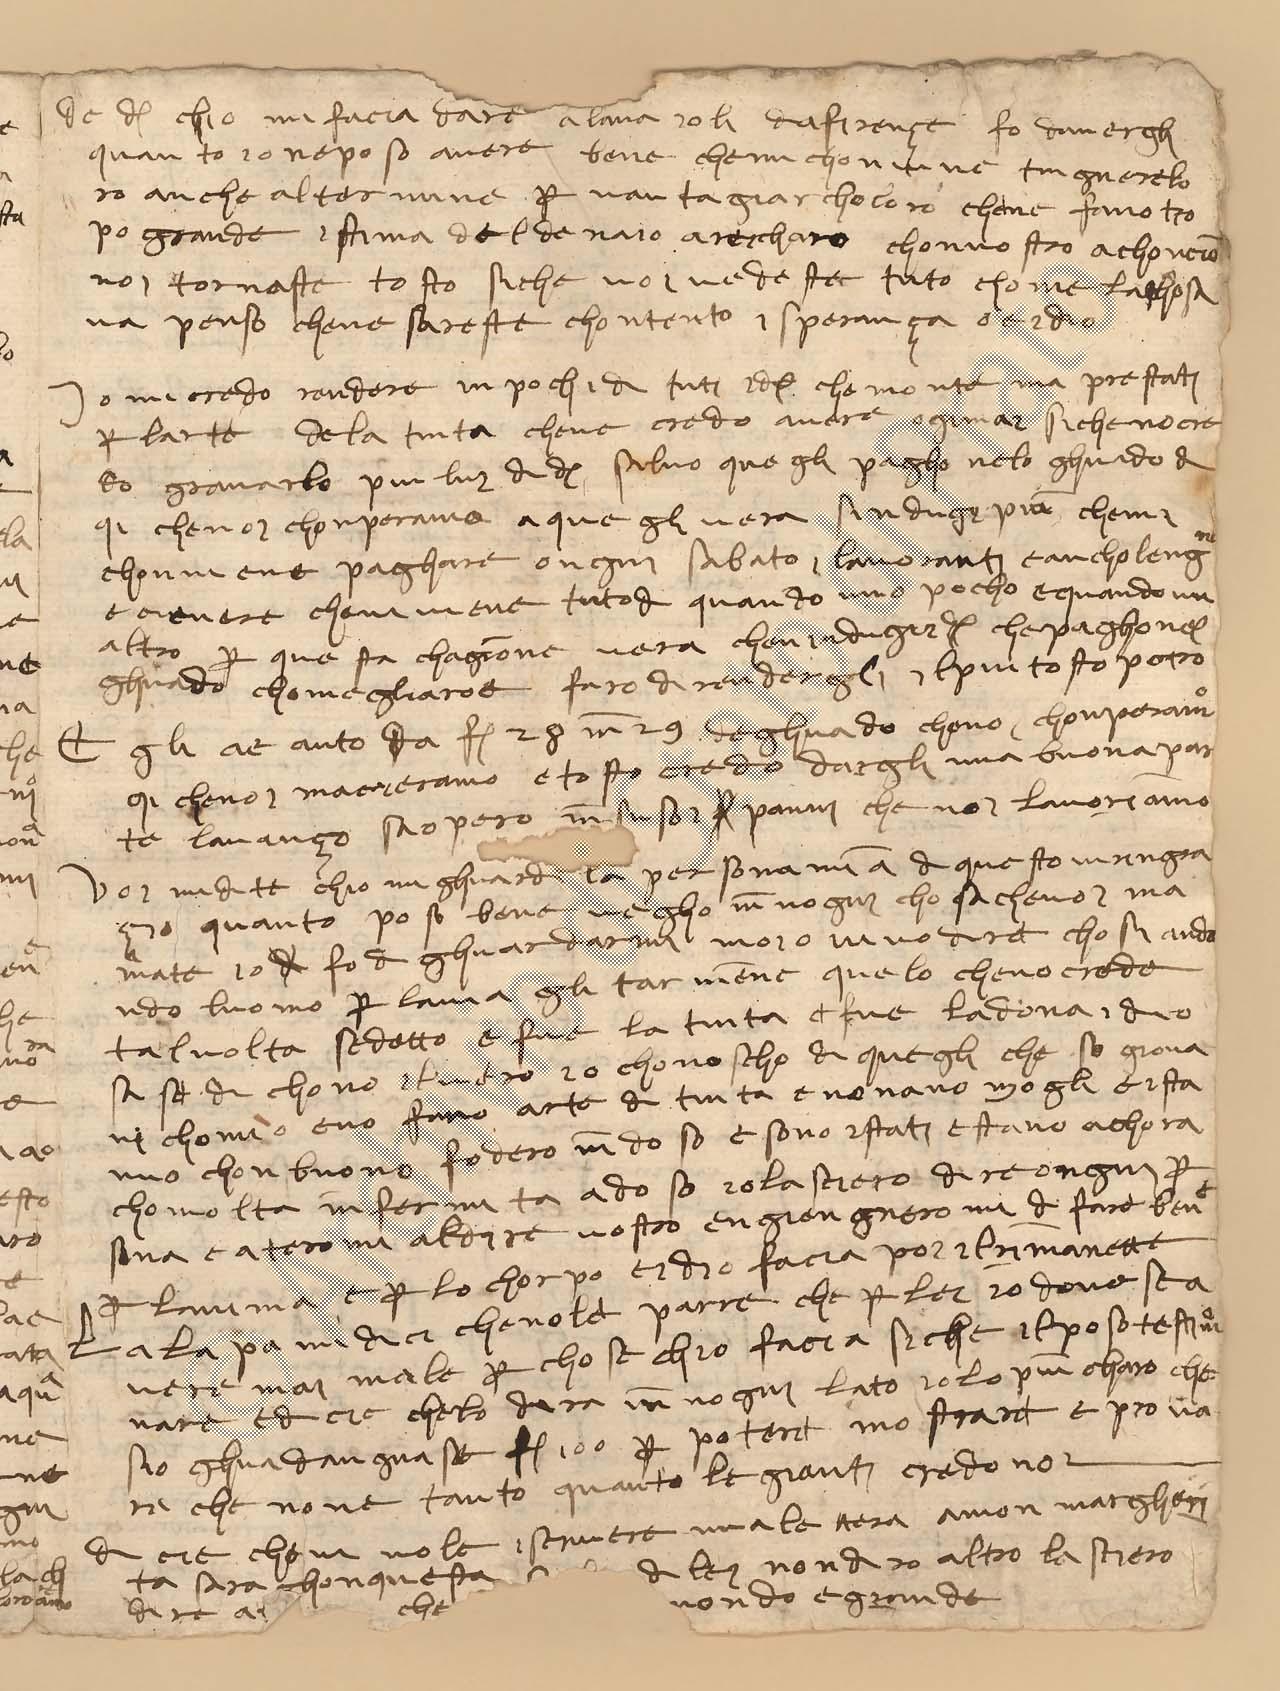 de d chio mi facia dare a lavaroli da firençe fo daverghi
quanto io ne poso avere bene che mi chonviene tignerelo
ro anche al termine per vantagiar choloro chene fano tro
po grande istima del denaio arechare chon vostro achoncio
voi tornaste tosto siche voi vedeste tuto chome la chosa
va penso chene sareste chontento isperança o e idio
Io mi credo rendere in pochi di tuti i d che monte ma prestati
per larte dela tinta chene credo avere ogimai siche no cre
do gravarlo piu lui di d salvo quegli pagho nelo ghuado di
qi che noi chonperamo a quegli vera sindugi piu che mi
chonviene paghare ongni sabato i lavoranti e ancho lengne
e cienere che mi viene tuto di quando uno pocho e quando un
altro per questa chagione vera che vindugi d che pagho nel
ghuado chome gliaroe faro di rendergli il piu tosto potro
Egli ae auto da f 28 in 29 de ghuado che noi chonperamo
qi che noi macieramo e tosto credo dargli una buona par
te lavanço saopero in su soi panni che noi lavoriamo
Voi mi dite chio mi ghuardi la persona mia di questo vi ringra
çio quanto poso bene vegho in nogni chosa che voi ma
mate io fo di ghuardarmi mo io vi vo dire chosi anda
ndo luomo per la via gli tar viene quelo che no crede
talvolta se detto e fue la tinta e fue la dona idio
sa se dichono il vero io chonoscho di quegli che so giova
ni chomio e no fano arte di tinta e non ano mogli e ista
nno chon buono fodero in doso e sono istati e stano achora
cho molta infermita adoso io lasciero dire ongni per
sona e ateromi al dire vostro e ngiengnero mi di fare bene
per lanima e per lo chorpo e idio facia poi il rimanete
La Lapa mi dici che vole parre che per lei io dove se a
vere mai male per chose chio facia siche il poso testimo
nare e dicie che lo dira in nogni lato io lo piu charo che
sio ghuadangnase f 100 per potere mostrare e prova
re che none tanto quanto le gienti credono
dicie che mi vole iscrivere una letera a mon margheri
ta sara chonquesta di lei non diro altro lasciero
dire a che mondo e grande